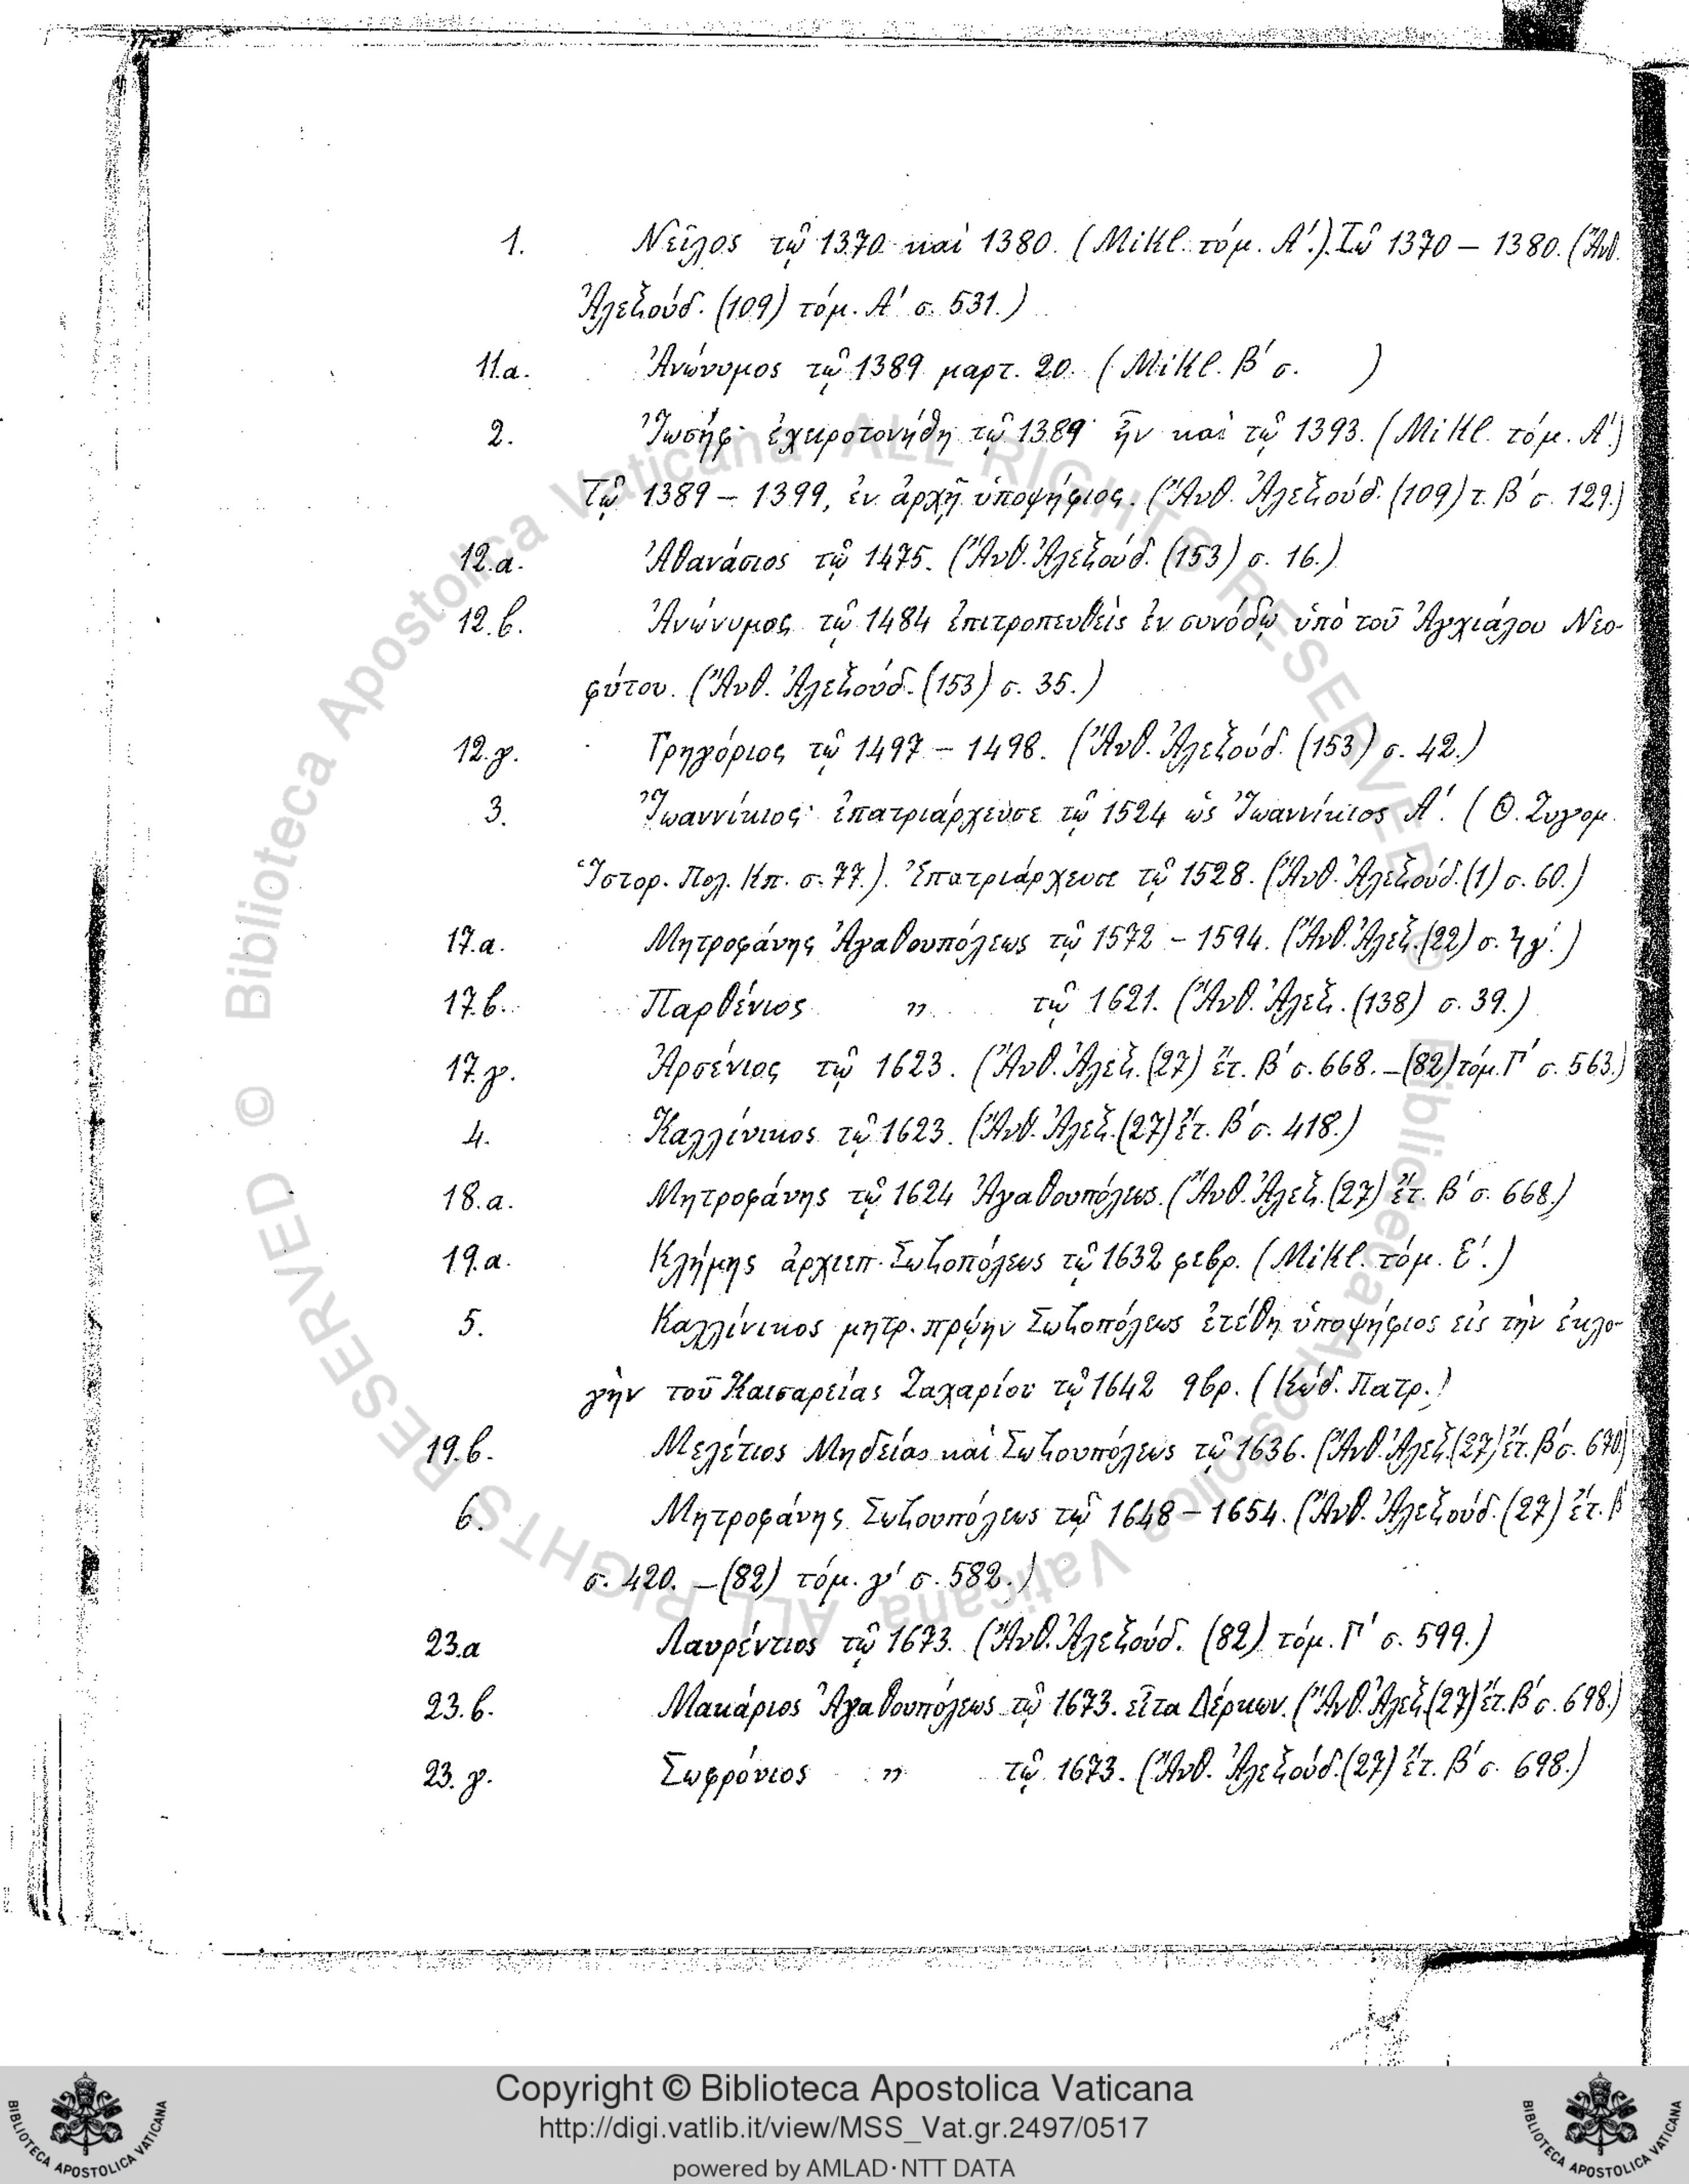 1. Νεῖλος τῷ 1370 καὶ 1380. (Mikl. τόμ. Α΄.). Τῷ 1370 – 1380. (Ἄνθ.
Ἀλεξούδ. (109) τόμ. Α΄ σ. 531.)
11.α. Ἀνώνυμος τῷ 1389 μαρτ. 20. (Mikl. Β΄ σ. )
2. Ἰωσήφ· ἐχειροτονήθη τῷ 1389· ἦν καὶ τῷ 1393. (Mikl. τόμ. Α΄.)
Τῷ 1389 – 1399, ἐν ἀρχῇ ὑποψήφιος. (Ἄνθ. Ἀλεξούδ. (109) τ. Β΄ σ. 129.)
12.α. Ἀθανάσιος τῷ 1475. (Ἄνθ. Ἀλεξούδ. (153) σ. 16.)
12.β. Ἀνώνυμος τῷ 1484 ἐπιτροπευθεὶς ἐν συνόδῳ ὑπὸ τοῦ Ἀγχιάλου Νεο-
φύτου. (Ἄνθ. Ἀλεξούδ. (153) σ. 35.)
12.γ. Γρηγόριος τῷ 1497 – 1498. (Ἄνθ. Ἀλεξούδ. (153) σ. 42.)
3. Ἰωαννίκιος· ἐπατριάρχευσε τῷ 1524 ὡς Ἰωαννίκιος Α΄. (Θ. Ζυγομ.
Ἱστορ. Πολ. Κπ. σ. 77.). Ἐπατριάρχευσε τῷ 1528. (Ἄνθ. Ἀλεξούδ. (1) σ. 60.)
17.α. Μητροφάνης Ἀγαθουπόλεως τῷ 1572 – 1594. (Ἄνθ. Ἀλεξ. (22) σ. ϟγ΄.)
17.β. Παρθένιος „ τῷ 1621. (Ἄνθ. Ἀλεξ. (138) σ. 39.)
17.γ. Ἀρσένιος τῷ 1623. (Ἄνθ. Ἀλεξ. (27) ἔτ. Β΄ σ. 668. – (82) τόμ. Γ΄ σ. 563.)
4. Καλλίνικος τῷ 1623. (Ἄνθ. Ἀλεξ. (27) ἔτ. Β΄ σ. 418.)
18.α. Μητροφάνης τῷ 1624 Ἀγαθουπόλεως. (Ἄνθ. Ἀλεξ. (27) ἔτ. Β΄ σ. 668.)
19.α. Κλήμης ἀρχιεπ. Σωζοπόλεως τῷ 1632 φεβρ. (Mikl. τόμ. Ε΄.)
5. Καλλίνικος μητρ. πρῴην Σωζοπόλεως ἐτέθη ὑποψήφιος εἰς τὴν ἐκλο-
γὴν τοῦ Καισαρείας Ζαχαρίου τῷ 1642 9βρ. (Κώδ. Πατρ.)
19.β. Μελέτιος Μηδείας καὶ Σωζουπόλεως τῷ 1636. (Ἄνθ. Ἀλεξ. (27) ἔτ. Β΄ σ. 670)
6. Μητροφάνης Σωζουπόλεως τῷ 1648 – 1654. (Ἄνθ. Ἀλεξούδ. (27) ἔτ. Β΄
σ. 420. – (82) τόμ. γ΄ σ. 582.)
23.α Λαυρέντιος τῷ 1673. (Ἄνθ. Ἀλεξούδ. (82) τόμ. Γ΄ σ. 599.)
23.β. Μακάριος Ἀγαθουπόλεως τῷ 1673. εἶτα Δέρκων. (Ἄνθ. Ἀλεξ. (27) ἔτ. Β΄ σ. 698.)
23.γ. Σωφρόνιος „ τῷ 1673. (Ἄνθ. Ἀλεξούδ. (27) ἔτ. Β΄ σ. 698.)
© Biblioteca Apostolica Vaticana ALL RIGHTS RESERVED © Biblioteca Apostolica Vaticana ALL RIGHTS RESERVED
Copyright © Biblioteca Apostolica Vaticana
http://digi.vatlib.it/view/MSS_Vat.gr.2497/0517
powered by AMLAD·NTT DATA
BIBLIOTECA APOSTOLICA VATICANA
BIBLIOTECA APOSTOLICA VATICANA